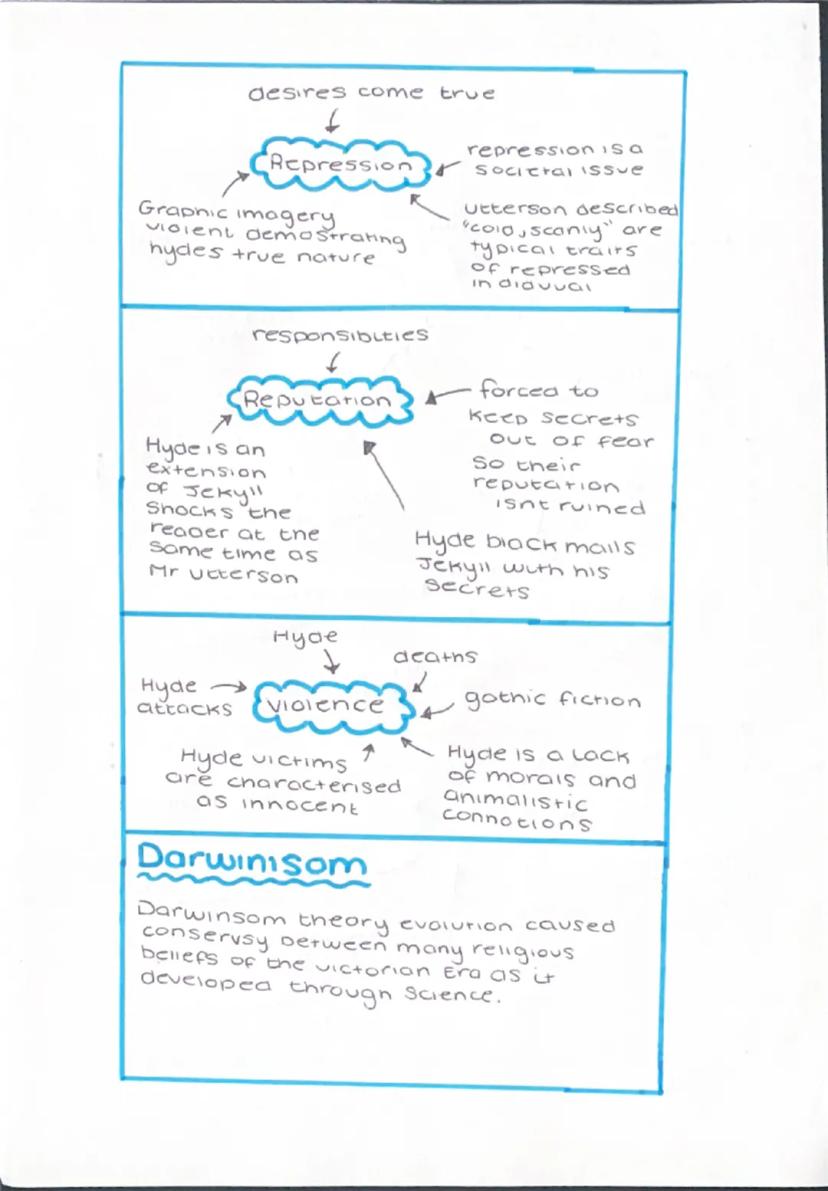 desires come true
Repression
repression is a
societal issue
Graphic imagery
violent demostrating
hydes true nature
utterson described
"cold, scanly" are
typical traits
of repressed
indiduual
responsiblties
Reputation
forced to
keep secrets
out of fear
so their
reputation
isnt ruined
Hyde is an
extension
of Jekyll
shocks the
reader at the
same time as
Mr utterson
Hyde black mails
Jekyll with his
secrets
Hyde
deaths
Hyde
attacks
violence
gothic fiction
Hyde victims
are characterised
as innocent
Hyde is a lack
of morals and
animalistic
connotions
Darwinisom
Darwinsom theory evolution caused
conservsy between many religious
beliefs of the victorian Era as it
developed through science.